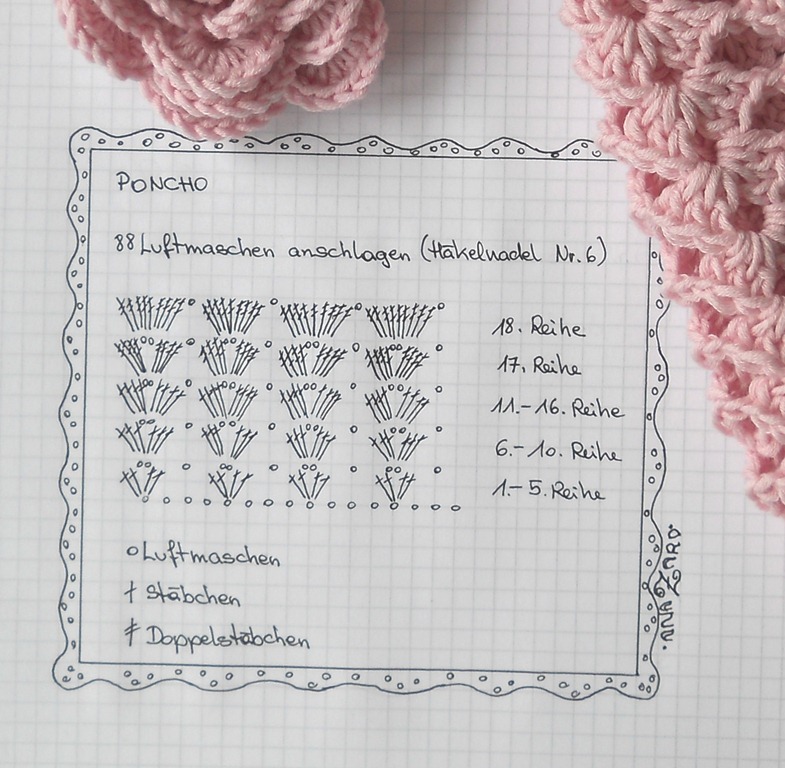 PONCHO
88 Luftmaschen anschlagen (Häkelnadel Nr. 6)
18. Reihe
17. Reihe
11.-16. Reihe
6.-10. Reihe
1.-5. Reihe
o Luftmaschen
† Stäbchen
ǂ Doppelstäbchen